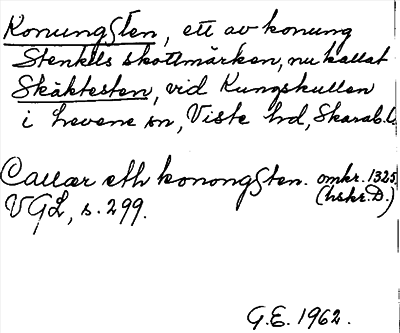 KonungSten, ett av konung
Stenkils skottmärken, nu kallat
Skäktesten, vid Kungskullen
i Levene sn, Viste hd, Skarab.l.
Callær eth konongSten. omkr. 1325
(hskr. D.)
VGL, s. 299.
G.E. 1962.